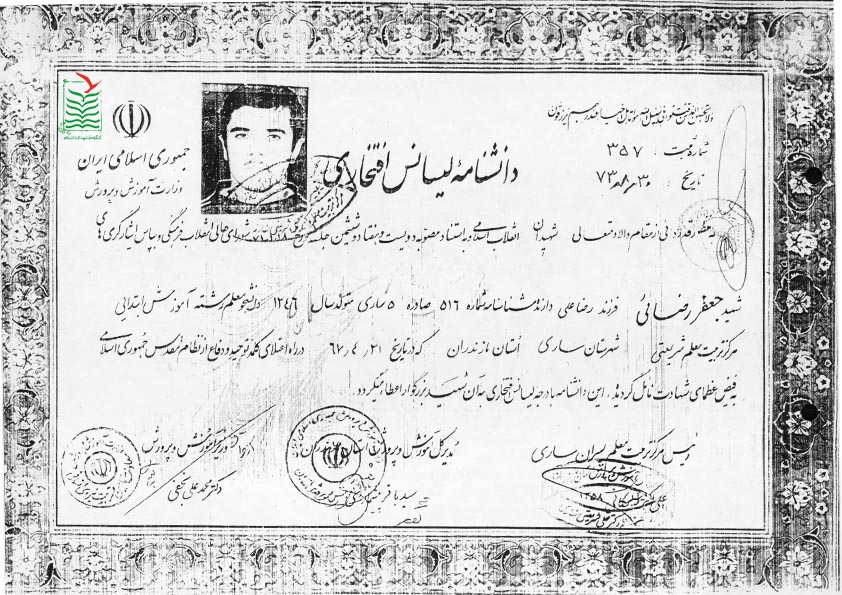 ولا تحسبن الذین قتلوا فی سبیل الله امواتا بل احیاء عند ربهم یرزقون
جمهوری اسلامی ایران
وزارت آموزش و پرورش
دانشنامهٔ لیسانس افتخاری
شماره ثبت : ۳۵۷
تاریخ : ۷۳/۸/۳۰
به منظور قدردانی از مقام والا و متعالی شهیدان انقلاب اسلامی و به استناد مصوبه دویست و هفتاد و ششمین جلسه عالی انقلاب فرهنگی و بپاس ایثارگری های
شهید جعفر رضائی فرزند رضاعلی دارنده شناسنامه شماره ۵۱۶ صادره ۵ ساری متولد سال ۱۳۴۶ دانشجو معلم رشته آموزش ابتدایی
مرکز تربیت معلم شریعتی شهرستان ساری استان مازندران که در تاریخ ۶۷/۴/۲۱ در راه اعتلای کلمه توحید و دفاع از نظام مقدس جمهوری اسلامی
به فیض عظمای شهادت نائل گردید. این دانشنامه با درجه لیسانس افتخاری بدان شهید بزرگوار اعطاء میگردد.
رئیس مرکز تربیت معلم پسران ساری
مدیر کل آموزش و پرورش استان مازندران
وزیر آموزش و پرورش
دکتر محمد علی نجفی